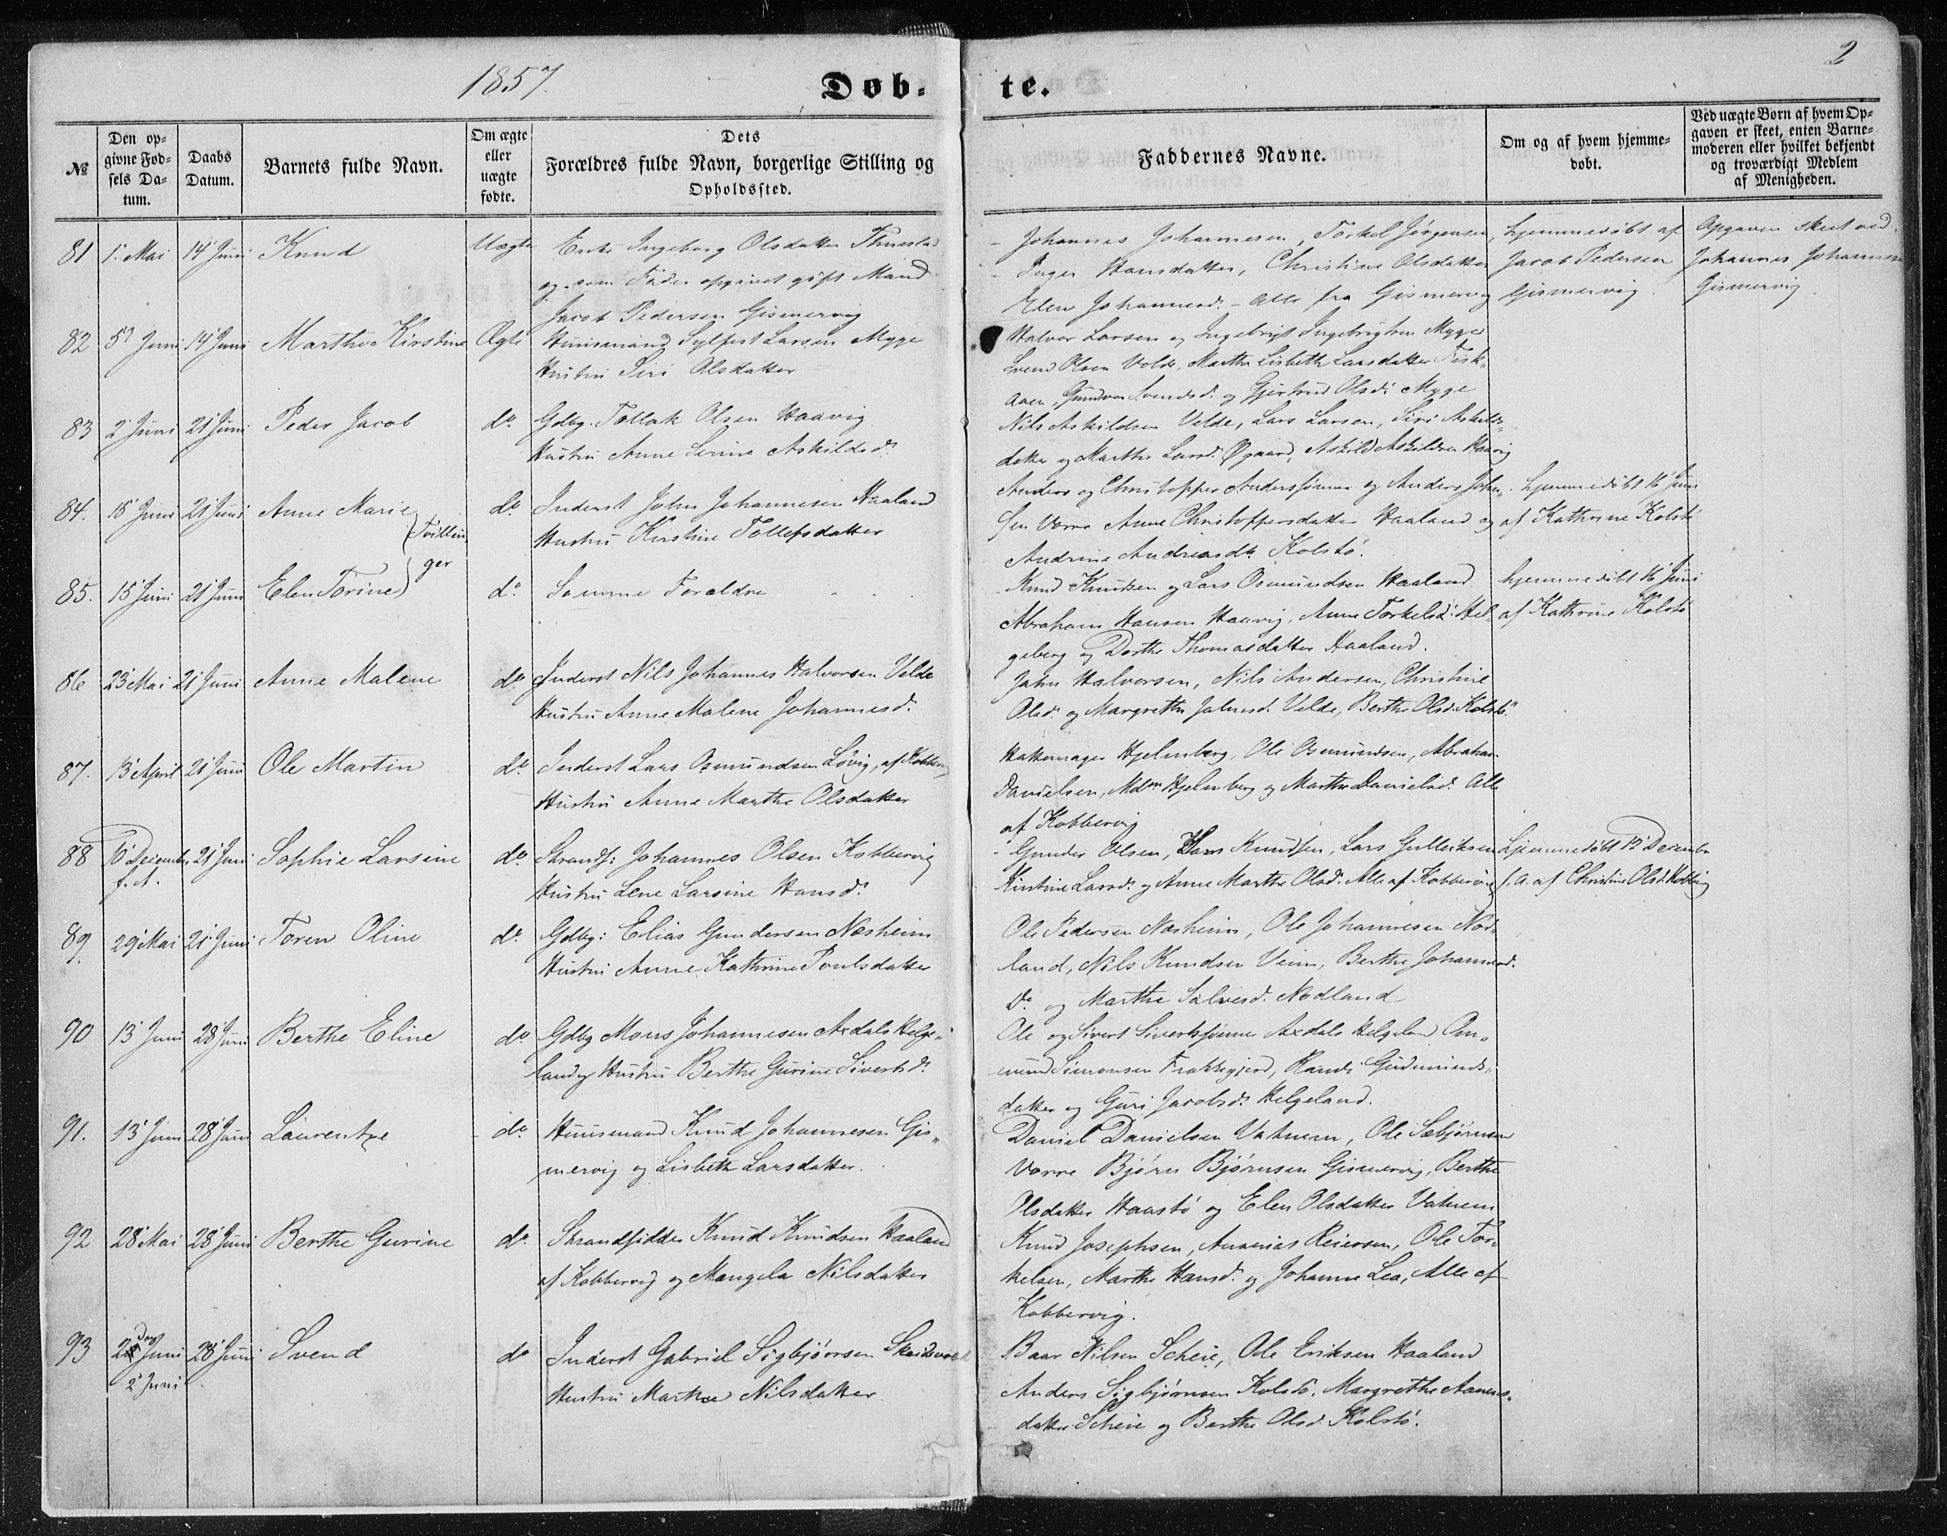 1857.
Døb-
te.
2
№
Den op-
givne Fød-
sels Da-
tum.
Daabs
Datum.
Barnets fulde Navn.
Om ægte
eller
uægte
fødte.
Dets
Forældres fulde Navn, borgerlige Stilling og
Opholdssted.
Faddernes Navne.
Om og af hvem hjemme-
døbt.
Ved uægte Børn af hvem Op-
gaven er skeet, enten Barne-
moderen eller hvilket bekjendt
og troværdigt Medlem
af Menigheden.
81 1 Mai 14 Juni Knud Uægte Enke Ingeborg Olsdatter
og som Fader opgivet gift Mand
Jacob Pedersen Gismervig
Johannes Johannesen, Torkel Jørgensen,
Inger Hansdatter, Christine Olsdatter
Elen Johannesd. - Alle fra Gismervig
hjemmedøbt af
Jacob Pedersen
Gismervig.
Opgaven skeet ved
Johannes Johannesen
Gismervig
82 5 Juni 14 Juni Marthe Kirstine Ægte Huusmand Sylfest Larsen Myge
Hustru Siri Olsdatter
Halvor Larsen og Ingebrigt Ingebrigtsen Myge
Svend Olsen Velde, Marthe Lisbeth Larsdatter Fisk-
aaen, Gundvor Svendsd. og Gjertrud Olsd. Myge
83 2 Juni 21 Juni Peder Jacob do Gdbg. Tollak Olsen Haavig
Hustru Anne Serine Askildsd.
Nils Askildsen Velde, Lars Larsen, Siri Askilds-
datter og Marthe Larsd. Øgaard, Askild Askildsen Haavig
84. 15 Juni 21 Juni Anne Marie do Inderst John Johannesen Haaland
(Tvillin-
ger
Hustru Kirstine Tollefsdatter
Anders og Christopher Anderssønner og Anders Johan-
sen Vorre Anne Christophersdatter Haaland og
Andrine Andreasd. Kolstø.
hjemmedøbt 16 Juni
af Kathrine Kolstø
85. 15 Juni 21 Juni Elen Torine) do Samme Forældre
Knud Knudsen og Lars Osmundsen Haaland
Abraham Hansen Haavig, Anne Torkelsd. Hel-
geberg og Dorthe Thomasdatter Haaland.
hjemmedøbt 16 Juni
af Kathrine Kolstø
86 23 Mai 21 Juni Anne Malene do Inderst Nils Johannes Halvorsen Velde
Hustru Anne Malene Johannesd.
John Halvorsen, Nils Andersen, Christine
Olsd. og Margrethe Johnsd. Velde, Berthe Olsd. Kolstø.
87. 13 April 21 Juni Ole Martin do Inderst Lars Osmundsen Løvig, af Kobberv.
Hustru Anne Marthe Olsdatter
Hattemager Hjelmberg, Ole Osmundsen, Abraham
Danielsen, Mdm Hjelmberg og Marthe Danielsd. Alle
af Kobbervig
88 6 Decembr. 21 Juni Sophie Larsine do Strands: Johannes Olsen Kobbervig
f. A.
Hustru Lene Larsine Hansd.
Gunder Olsen, Hans Knudsen, Lars Gulliksen
Kirstine Larsd. og Anne Marthe Olsd. Alle af Kobbervig
hjemmedøbt 12 Decembr
f. A. af Christine Olsd. Kobbvig
89. 29 Mai 21 Juni Toren Oline do Gdbg: Elias Gundersen Næsheim
Hustru Anne Kathrine Poulsdatter
Ole Pedersen Næsheim, Ole Johannesen Nod-
land, Nils Knudsen Veim, Berthe Johannesd.
do og Marthe Salvesd. Nodland
90 13 Juni 28 Juni Berthe Eline do Gdbg Mons Johannesen Axdals Helge-
land og Hustru Berthe Gurine Sivertsd.
Ole og Sivert Sivertssønner Axdals Helgeland Om-
mund Simonsen Frakkegjerd, Randi Gudmunds-
datter og Guri Jacobsd. Helgeland.
91. 13 Juni 28 Juni Laurentze do Huusmand Knud Johannesen Gis-
mervig og Lisbeth Larsdatter.
Daniel Danielsen Vatnem, Ole Sæbjørnsen
Vorre Bjørn Bjørnsen Gismervig, Berthe
Olsdatter Haastø og Elen Olsdatter Vatnem
92 28 Mai 28 Juni Berthe Gurine do Strandsidder Knud Knudsen Haaland
af Kobbervig og Mangela Nilsdatter
Knud Josephsen, Ananias Reiersen, Ole Tor-
kelsen, Marthe Hansd. og Johanne Lea, Alle af
Kobbervig.
93 Juni 28 Juni Svend do Inderst Gabriel Sigbjørnsen
2 Juni
Hustru Marthe Nilsdatter
Baar Nilsen Scheie, Ole Eriksen Haaland
Anders Sigbjørnsen Kolstø, Margrethe Aanens-
datter Scheie og Berthe Olsd. Kolstø.